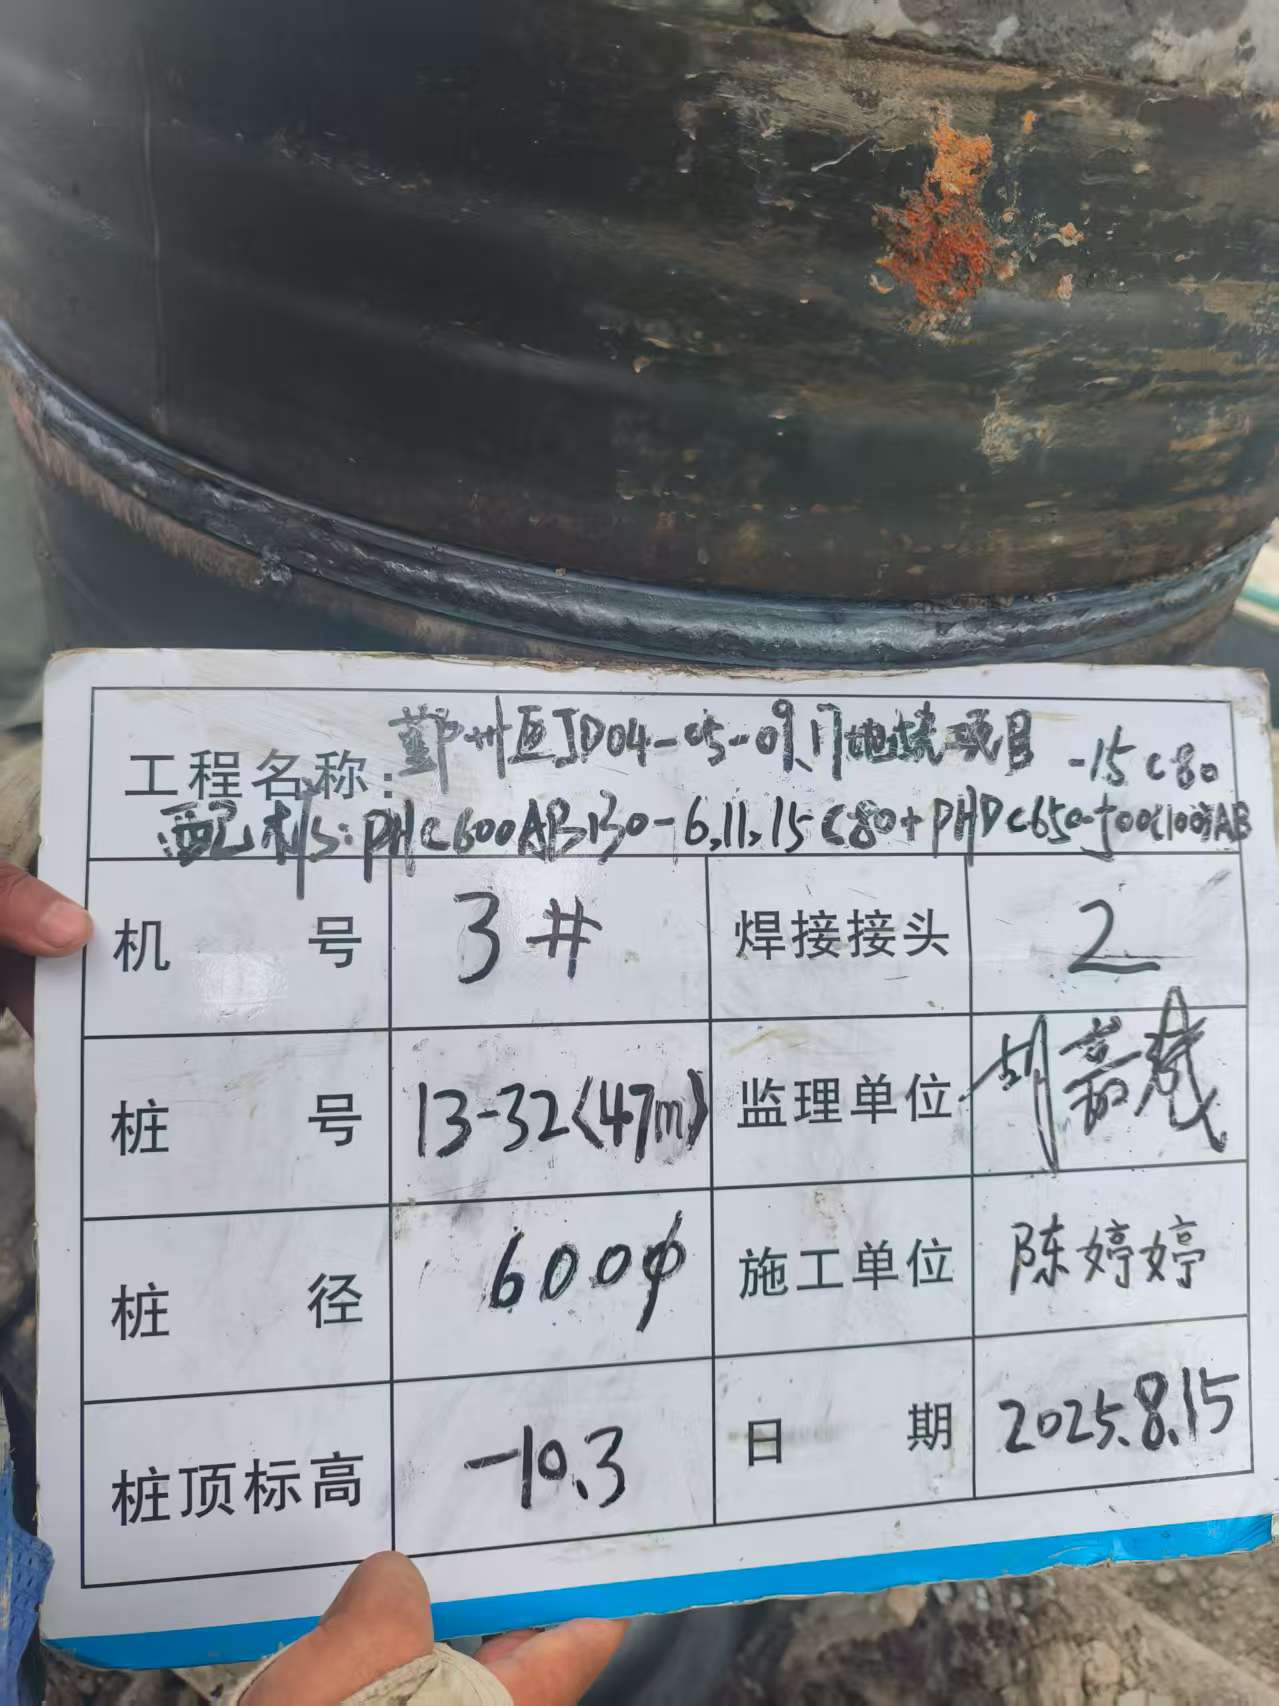 工程名称: 鄞州区JD04-05-09、门地块项目
-15 C80
配桩: PHC600AB130-6,11,15 C80+PHDC650-500(100)AB
机号 3# 焊接接头 2
桩号 13-32(47m) 监理单位 胡
桩径 600φ 施工单位 陈婷婷
桩顶标高 -10.3 日期 2025.8.15